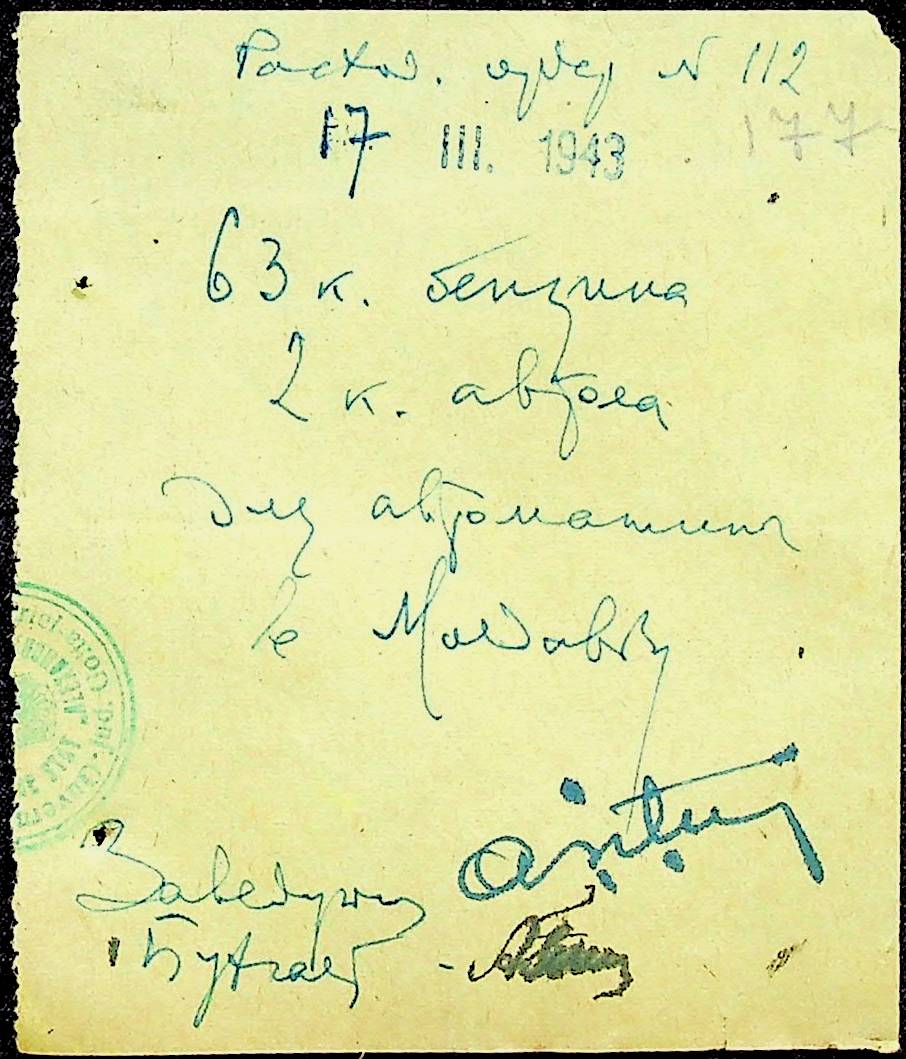 Расход. ордер № 112
17 III. 1943
177
63 к. бензина
2 к. автола
Для автомашины
в Молдавию
Заведующ
Бухгалт -